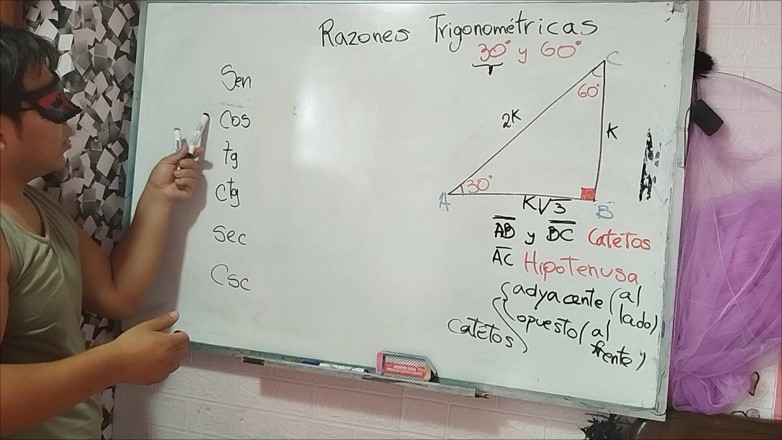 Razones Trigonométricas
30° y 60°
Sen
Cos
Tg
Ctg
Sec
Csc
C
60°
2K
K
A
30°
K√3
B
AB y BC Catetos
AC Hipotenusa
catetos
adyacente (al
lado)
opuesto (al
frente)